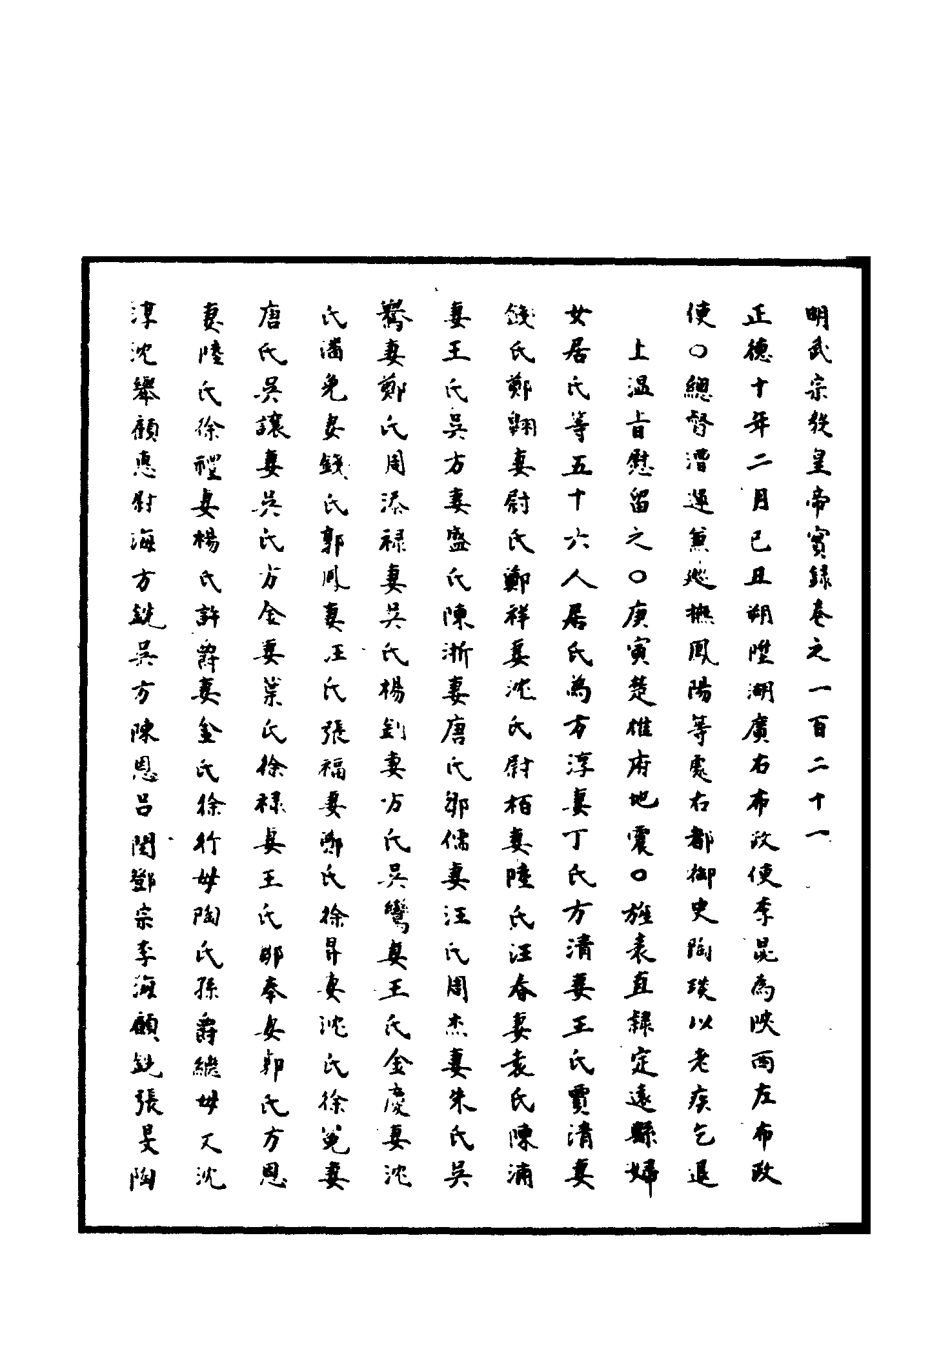 明武宗毅皇帝實錄卷之一百二十一
正德十年二月己丑朔陞湖廣右布政使李昆為陝西左布政
使○總督漕運兼巡撫鳳陽等處右都御史陶琰以老疾乞退
上温旨慰留之○庚寅楚雄府地震○旌表直隸定遠縣婦
女居氏等五十六人居氏為方淳妻丁氏方清妻王氏賈清妻
錢氏鄭翱妻尉氏鄭祥妻沈氏尉栢妻陸氏汪春妻袁氏陳浦
妻王氏吳方妻盛氏陳浙妻唐氏鄒儒妻汪氏周杰妻朱氏吳
鸞妻鄭氏周添禄妻吳氏楊釗妻方氏吳鸞妻王氏金慶妻沈
氏潘免妻錢氏郭鳳妻汪氏張福妻鄭氏徐昇妻沈氏徐冕妻
唐氏吳讓妻吳氏方金妻葉氏徐禄妻王氏鄒奉妻郭氏方恩
妻陸氏徐禮妻楊氏許爵妻金氏徐行母陶氏孫爵繼母又沈
淳沈舉顧惠尉海方銑吳方陳恩呂閏鄧宗李海顧銑張旻陶